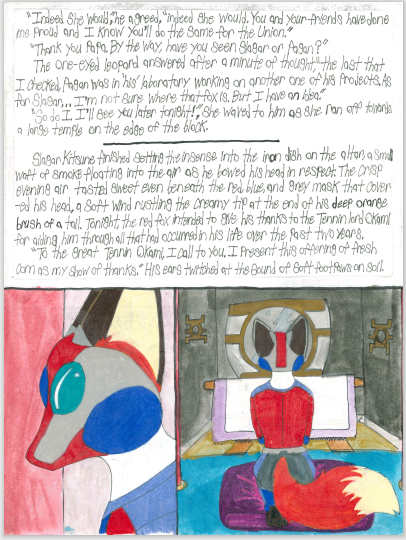 "Indeed she would," he agreed, "indeed she would. You and your friends have done
me proud and I know you'll do the same for the Union."
"Thank you Papa. By the way, have you seen Slagar or Pagan?"
The one-eyed leopard answered after a minute of thought, "the last that
I checked, Pagan was in 'his' laboratory working on another one of his projects. As
for Slagar... I'm not sure where that fox is. But I have an idea."
"So do I. I'll see you later tonight!," she waved to him as she ran off towards
a large temple on the edge of the block.
Slagar Kitsune finished setting the insense into the iron dish on the altar, a small
waft of smoke floating into the air as he bowed his head in respect. The crisp
evening air tasted sweet even beneath the red, blue, and grey mask that cover-
ed his head, a soft wind rustling the creamy tip at the end of his deep orange
brush of a tail. Tonight, the red fox intended to give his thanks to the Tennin lord Okami
for aiding him through all that had occurred in his life over the past two years.
"To the great Tennin Okami, I call to you. I present this offering of fresh
corn as my show of thanks." His ears twitched at the sound of soft footpaws on soil.